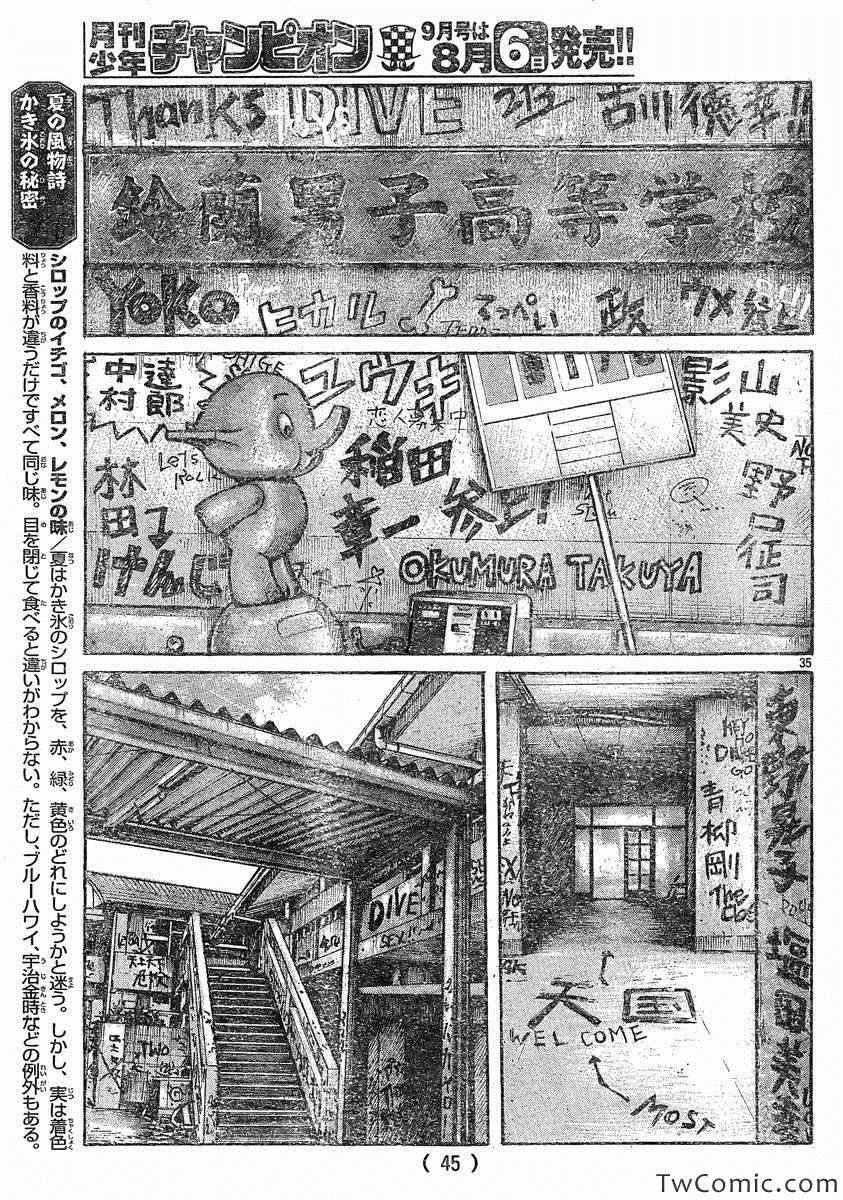 月刊少年チャンピオン 9月号は8月6日発売!!
夏の風物詩
かき氷の秘密
シロップのイチゴ、メロン、レモンの味/夏はかき氷のシロップを、赤、緑、黄色のどれにしようかと迷う。しかし、実は着色
料と香料が違うだけですべて同じ味。目を閉じて食べると違いがわからない。ただし、ブルーハワイ、宇治金時などの例外もある。
Thanks DIVE 吉川徳幸!!
鈴蘭男子高等学校
Yoko ヒカル てっぺい 政 ウメ
中村達郎
ユウキ
恋人募集中
Let's Rock
稲田章一参上!
影山
美史
野口征司
林田
けんじ
OKUMURA TAKUYA
35
DIVE
SEX
天上天下
危険
TWO
HEY
DIVE
GO
青柳剛
The
天国
WELCOME
MOST
東野昇子
塩田
(45)
TwComic.com